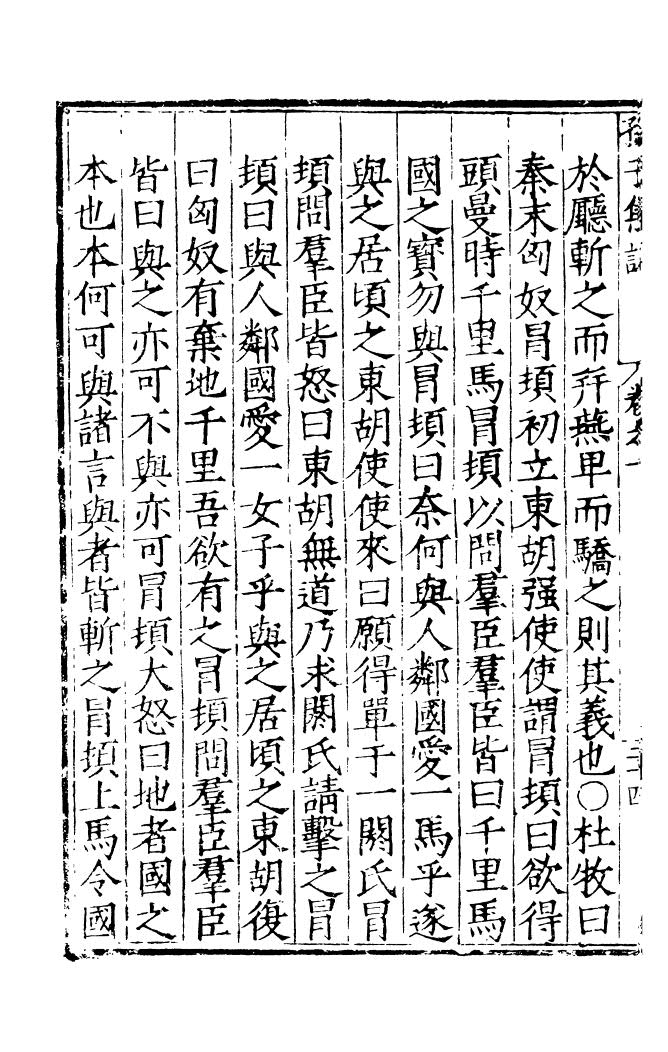 於廳斬之而幷燕卑而驕之則其義也○杜牧曰
秦末匈奴冒頓初立東胡强使使謂冒頓曰欲得
頭曼時千里馬冒頓以問羣臣羣臣皆曰千里馬
國之寶勿與冒頓曰奈何與人鄰國愛一馬乎遂
與之居頃之東胡使使來曰願得單于一閼氏冒
頓問羣臣皆怒曰東胡無道乃求閼氏請擊之冒
頓曰與人鄰國愛一女子乎與之居頃之東胡復
曰匈奴有棄地千里吾欲有之冒頓問羣臣羣臣
皆曰與之亦可不與亦可冒頓大怒曰地者國之
本也本何可與諸言與者皆斬之冒頓上馬令國